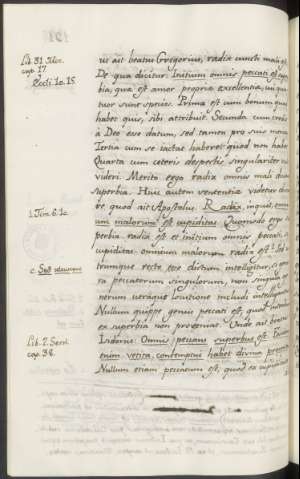 Lib. 31. Mor.
cap. 17.
Eccli. 10. 15.
1. Tim. 6. 10.
c. Sed
Lib. 2. Sent.
cap. 38.
us ait beatus Gregorius, radix cuncti mali est.
De qua dicitur. Initium omnis peccati est super
bia, quæ est amor propriæ excellentiæ, cuius qua
tuor sunt species. Prima est cum bonum quod
habet quis, sibi attribuit. Secunda cum credit
à Deo esse datum, sed tamen pro suis meritis
Tertia cum se iactat habere quod non habet
Quarta cum ceteris despectis singulariter vult
videri. Merito ergo radix omnis mali dicitur
superbia. Huic autem sententiæ videtur obvia
re quod ait Apostolus. Radix, inquit, omni
um malorum est cupiditas. Quomodo ergo su
perbia radix est et initium omnis peccati, si
cupiditas omnium malorum radix est? Sed u
trumque recte esse dictum intelligitur, si gene
ra peccatorum singulorum, non singula ge
nerum utraque locutione includi intelligantur
Nullum quippe genus peccati est, quod
ex superbia non proveniat. Unde ait beatus
Isidorus. Omnis peccans superbus est
enim vetita contemptui habet divina præcepta
Nullum etiam peccatum est, quod ex cupiditate